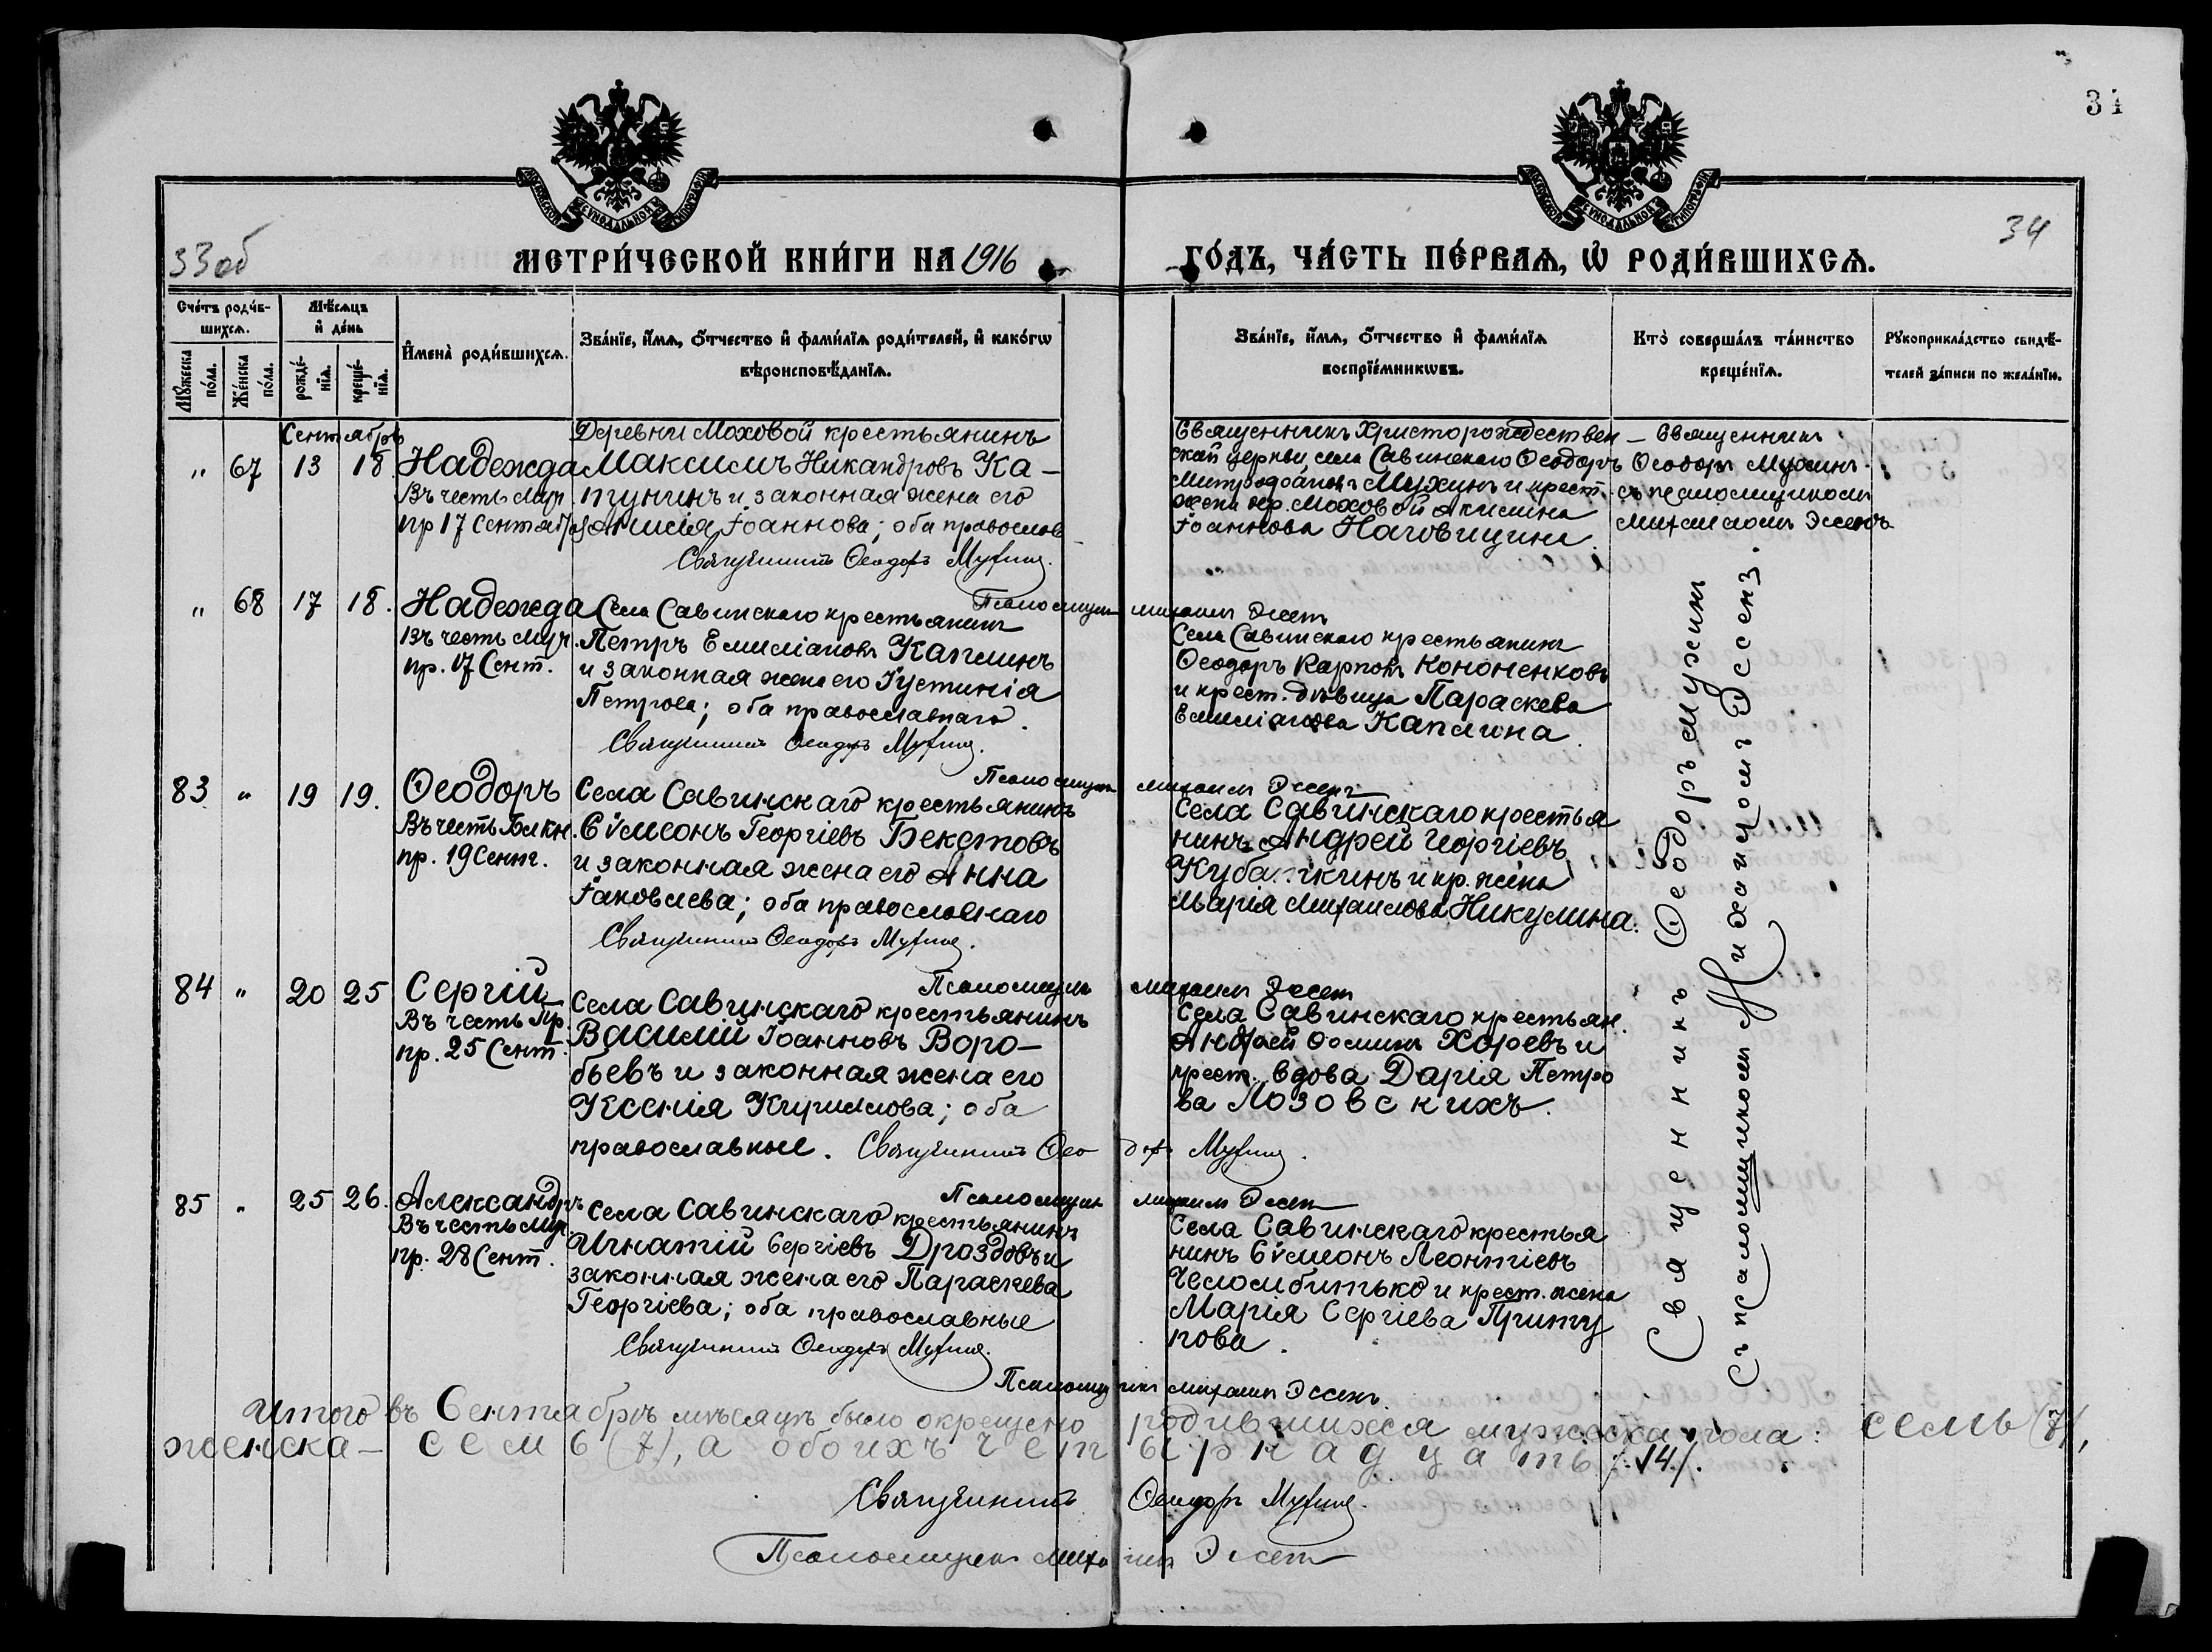 31
33об
34
МЕТРИ́ЧЕСКОЙ КНИ́ГИ НА 1916
ГО́ДЪ, ЧА́СТЬ ПЕ́РВАѦ, Ѡ РОДИ́ВШИХСѦ.
Сче́тъ роди́в-
шихсѧ.
Мѣ́сѧцъ
и҆ де́нь
Мꙋ́жеска
по́ла.
Же́нска
по́ла.
рожде́-
нїѧ.
креще́-
нїѧ.
И҆мена̀ роди́вшихсѧ.
Зва́нїе, и҆́мѧ, ѻ҆́тчество и҆ фами́лїѧ роди́телей, и҆ како́гѡ
вѣроисповѣ́данїѧ.
Зва́нїе, и҆́мѧ, ѻ҆́тчество и҆ фами́лїѧ
воспрїе́мникѡвъ.
Кто̀ соверша́лъ та́инство
креще́нїѧ.
Рꙋкоприкла́дство свидѣ́-
телей за́писи по жела́нїю.
Сентябрь
" 67 13 18
Надежда
Въ честь муч.
пр 17 Сентября
Деревни Моховой крестьянинъ
Максимъ Никандровъ Ка-
пунинъ и законная жена его
Анисія Іоаннова; оба православ
Священникъ Ѳеодоръ Мухинъ.
Священникъ Христорождествен-
ской церкви, села Савинскаго Ѳеодоръ
Митрофановъ Мухинъ и крест.
жена дер. Моховой Акилина
Іоаннова Наговицина.
Священникъ
Ѳеодоръ Мухинъ
съ псаломщикомъ
Михаиломъ Эссенъ
Псаломщикъ Михаилъ Эссенъ
" 68 17 18.
Надежда
Въ честь муч.
пр. 17 Сент.
Села Савинскаго крестьянинъ
Петръ Емиліановъ Каплинъ
и законная жена его Іустинія
Петрова; оба православнаго.
Священникъ Ѳеодоръ Мухинъ.
Села Савинскаго крестьянинъ
Ѳеодоръ Карповъ Кононенковъ
и крест. дѣвица Параскева
Емиліанова Каплина.
Псаломщикъ Михаилъ Эссенъ
83 " 19 19.
Ѳеодоръ
Въ честь Бл кн.
пр. 19 Сент.
Села Савинскаго крестьянинъ
Сѵмеонъ Георгіевъ Бекетовъ
и законная жена его Анна
Іаковлева; оба православнаго
Священникъ Ѳеодоръ Мухинъ.
Села Савинскаго крестья
нинъ Андрей Георгіевъ
и кр. жена
Марія Михаилова Никулина.
Псаломщикъ Михаилъ Эссенъ
84 " 20 25
Сергій
Въ честь Пр
пр. 25 Сент.
Села Савинскаго крестьянинъ
Василій Іоанновъ Воро-
бьевъ и законная жена его
Ксенія Кириллова; оба
православные. Священникъ Ѳеодоръ Мухинъ.
Села Савинскаго крестьян.
Андрей Ѳоминъ Хоревъ и
крест. вдова Дарія Петро
ва Лозовскихъ.
Псаломщикъ Михаилъ Эссенъ
85 " 25 26.
Александръ
Въ честь муч.
пр. 28 Сент.
Села Савинскаго крестьянинъ
Игнатій Сергіевъ Дроздовъ и
законная жена его Параскева
Георгіева; оба православные
Священникъ Ѳеодоръ Мухинъ.
Села Савинскаго крестья
нинъ Сѵмеонъ Леонтіевъ
Челомбитько и крест. жена
Марія Сергіева Приту
пова.
Псаломщикъ Михаилъ Эссенъ.
Священникъ Ѳеодоръ Мухинъ
Съ псаломщикомъ Михаиломъ Эссенъ.
Итого въ Сентябрѣ мѣсяцѣ было окрещено родившихся мужеска пола: семь (7),
женска - семь (7), а обоихъ четырнадцать /.14./.
Священникъ Ѳеодоръ Мухинъ.
Псаломщикъ Михаилъ Эссенъ